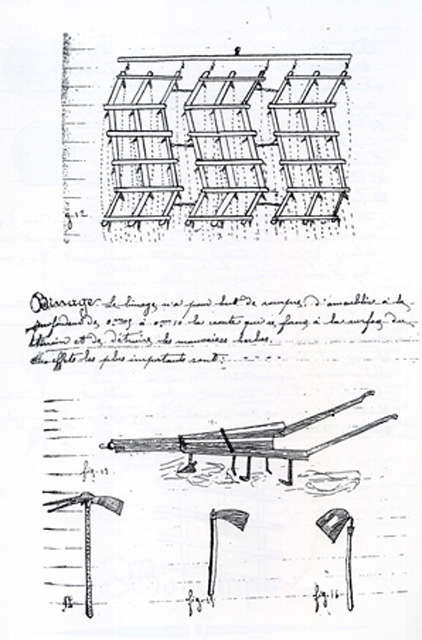 g. 12
Binage. Le binage n'a pour but de rompre, d'ameublir à la
profondeur de 0m05 à 0m10 la croute qui se forme à la surface du
terrain et de détruire les mauvaises herbes.
Ses effets les plus importants sont :
fig. 13
fig. 15
fig. 16